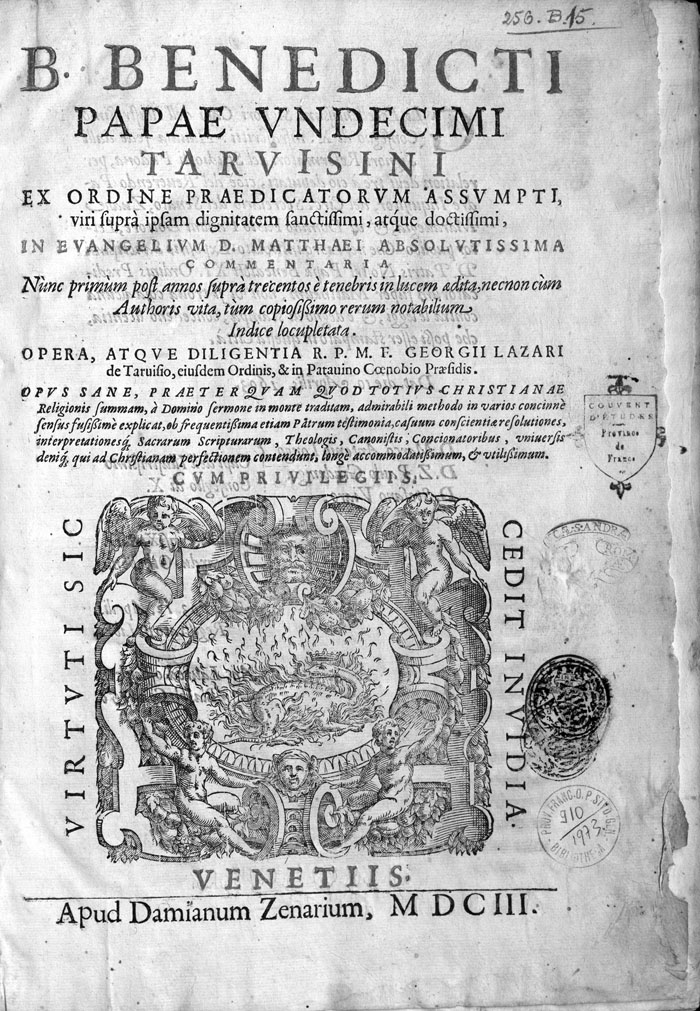 256. B. 15.
B. BENEDICTI
PAPAE VNDECIMI
TARVISINI
EX ORDINE PRAEDICATORVM ASSVMPTI,
viri suprà ipsam dignitatem sanctissimi, atque doctissimi,
IN EVANGELIVM D. MATTHAEI ABSOLVTISSIMA
COMMENTARIA
Nunc primum post annos supra trecentos è tenebris in lucem ædita, necnon cùm
Authoris vita, tùm copiosissimo rerum notabilium
Indice locupletata.
OPERA, ATQVE DILIGENTIA R. P. M. F. GEORGII LAZARI
de Taruisio, eiusdem Ordinis, & in Patauino Cœnobio Præsidis.
OPVS SANE, PRAETERQVAM QVOD TOTIVS CHRISTIANAE
Religionis summam, à Domino sermone in monte traditam, admirabili methodo in varios concinnè
sensus fusissimè explicat, ob frequentissima etiam Patrum testimonia, casuum conscientiæ resolutiones,
interpretationesq́; Sacrarum Scripturarum, Theologis, Canonistis, Concionatoribus, vniuersis
deniq́; qui ad Christianam perfectionem contendunt, longè accommodatissimum, & vtilissimum.
CVM PRIVILEGIIS.
COUVENT
D'ÉTUDES
Province
de
France
VIRTVTI SIC
CEDIT INVIDIA.
PROV. FRANC. O. P.
910
1973
VENETIIS.
Apud Damianum Zenarium, M DCIII.